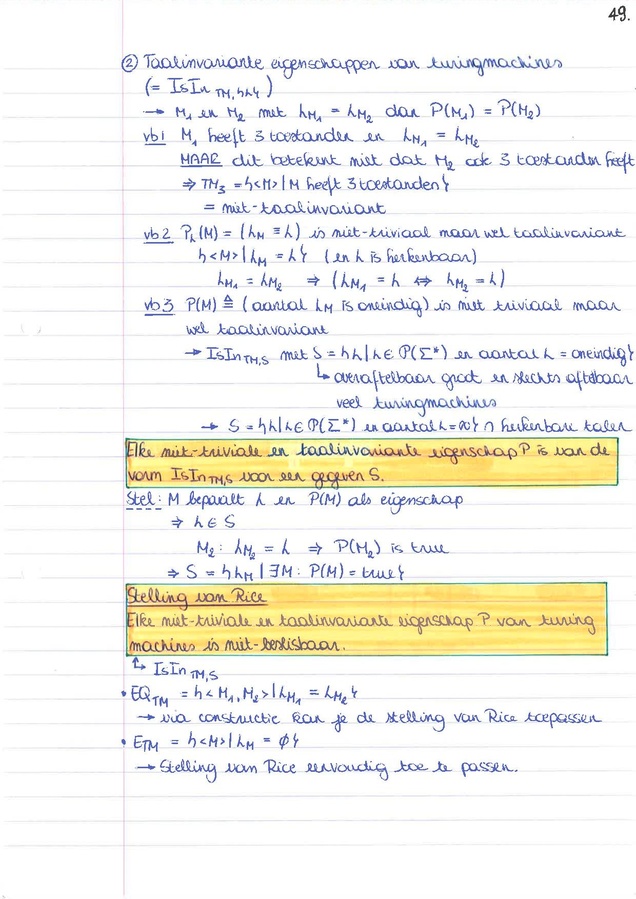 49.
② Taalinvariante eigenschappen van turingmachines
(= IsIn TM,{L})
→ M₁ en M₂ met L_M₁ = L_M₂ dan P(M₁) = P(M₂)
vb1 M₁ heeft 3 toestanden en L_M₁ = L_M₂
MAAR dit betekent niet dat M₂ ook 3 toestanden heeft
⇒ TM₃ = {<M> | M heeft 3 toestanden}
= niet-taalinvariant
vb2 P_L(M) = (L_M ≡ L) is niet-triviaal maar wel taalinvariant
{<M> | L_M = L} (en L is herkenbaar)
L_M₁ = L_M₂ ⇒ (L_M₁ = L ⇔ L_M₂ = L)
vb3 P(M) ≜ (aantal L_M is oneindig) is niet triviaal maar
wel taalinvariant
→ IsIn TM,S met S = {L | L ∈ P(Σ*) en aantal L = oneindig}
↳ overaftelbaar groot en slechts aftelbaar
veel turingmachines
→ S = {L | L ∈ P(Σ*) en aantal L = ∞} ∩ herkenbare talen
Elke niet-triviale en taalinvariante eigenschap P is van de
vorm IsIn TM,S voor een gegeven S.
Stel: M bepaalt L en P(M) als eigenschap
⇒ L ∈ S
M₂: L_M₂ = L ⇒ P(M₂) is true
⇒ S = {L_M | ∃M: P(M) = true}
Stelling van Rice
Elke niet-triviale en taalinvariante eigenschap P van turing
machines is niet-beslisbaar.
↳ IsIn TM,S
• EQ_TM = {<M₁, M₂> | L_M₁ = L_M₂}
→ via constructie kan je de stelling van Rice toepassen
• E_TM = {<M> | L_M = ∅}
→ Stelling van Rice eenvoudig toe te passen.